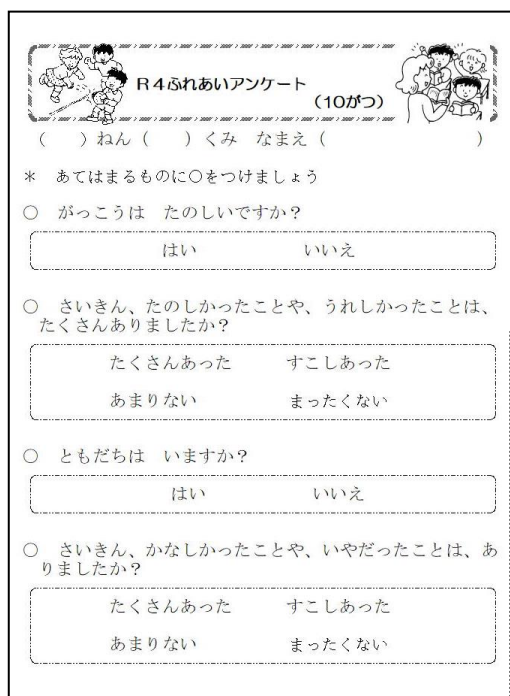 R4ふれあいアンケート
(10がつ)
(　　)ねん(　　)くみ　なまえ(　　　　　　　　　　)
＊　あてはまるものに○をつけましょう
○　がっこうは　たのしいですか？
はい　　　　　　いいえ
○　さいきん、たのしかったことや、うれしかったことは、
たくさんありましたか？
たくさんあった　　　すこしあった
あまりない　　　　　まったくない
○　ともだちは　いますか？
はい　　　　　　いいえ
○　さいきん、かなしかったことや、いやだったことは、あ
りましたか？
たくさんあった　　　すこしあった
あまりない　　　　　まったくない